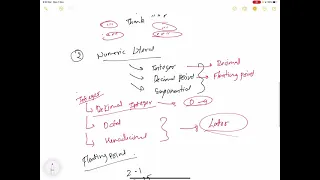 Think
② Numeric Literal
Integer → Decimal
Decimal point → Floating point
Exponential
Integer
Decimal Integer → 0-9
Octal
Hexadecimal → Later
Floating point
2.1